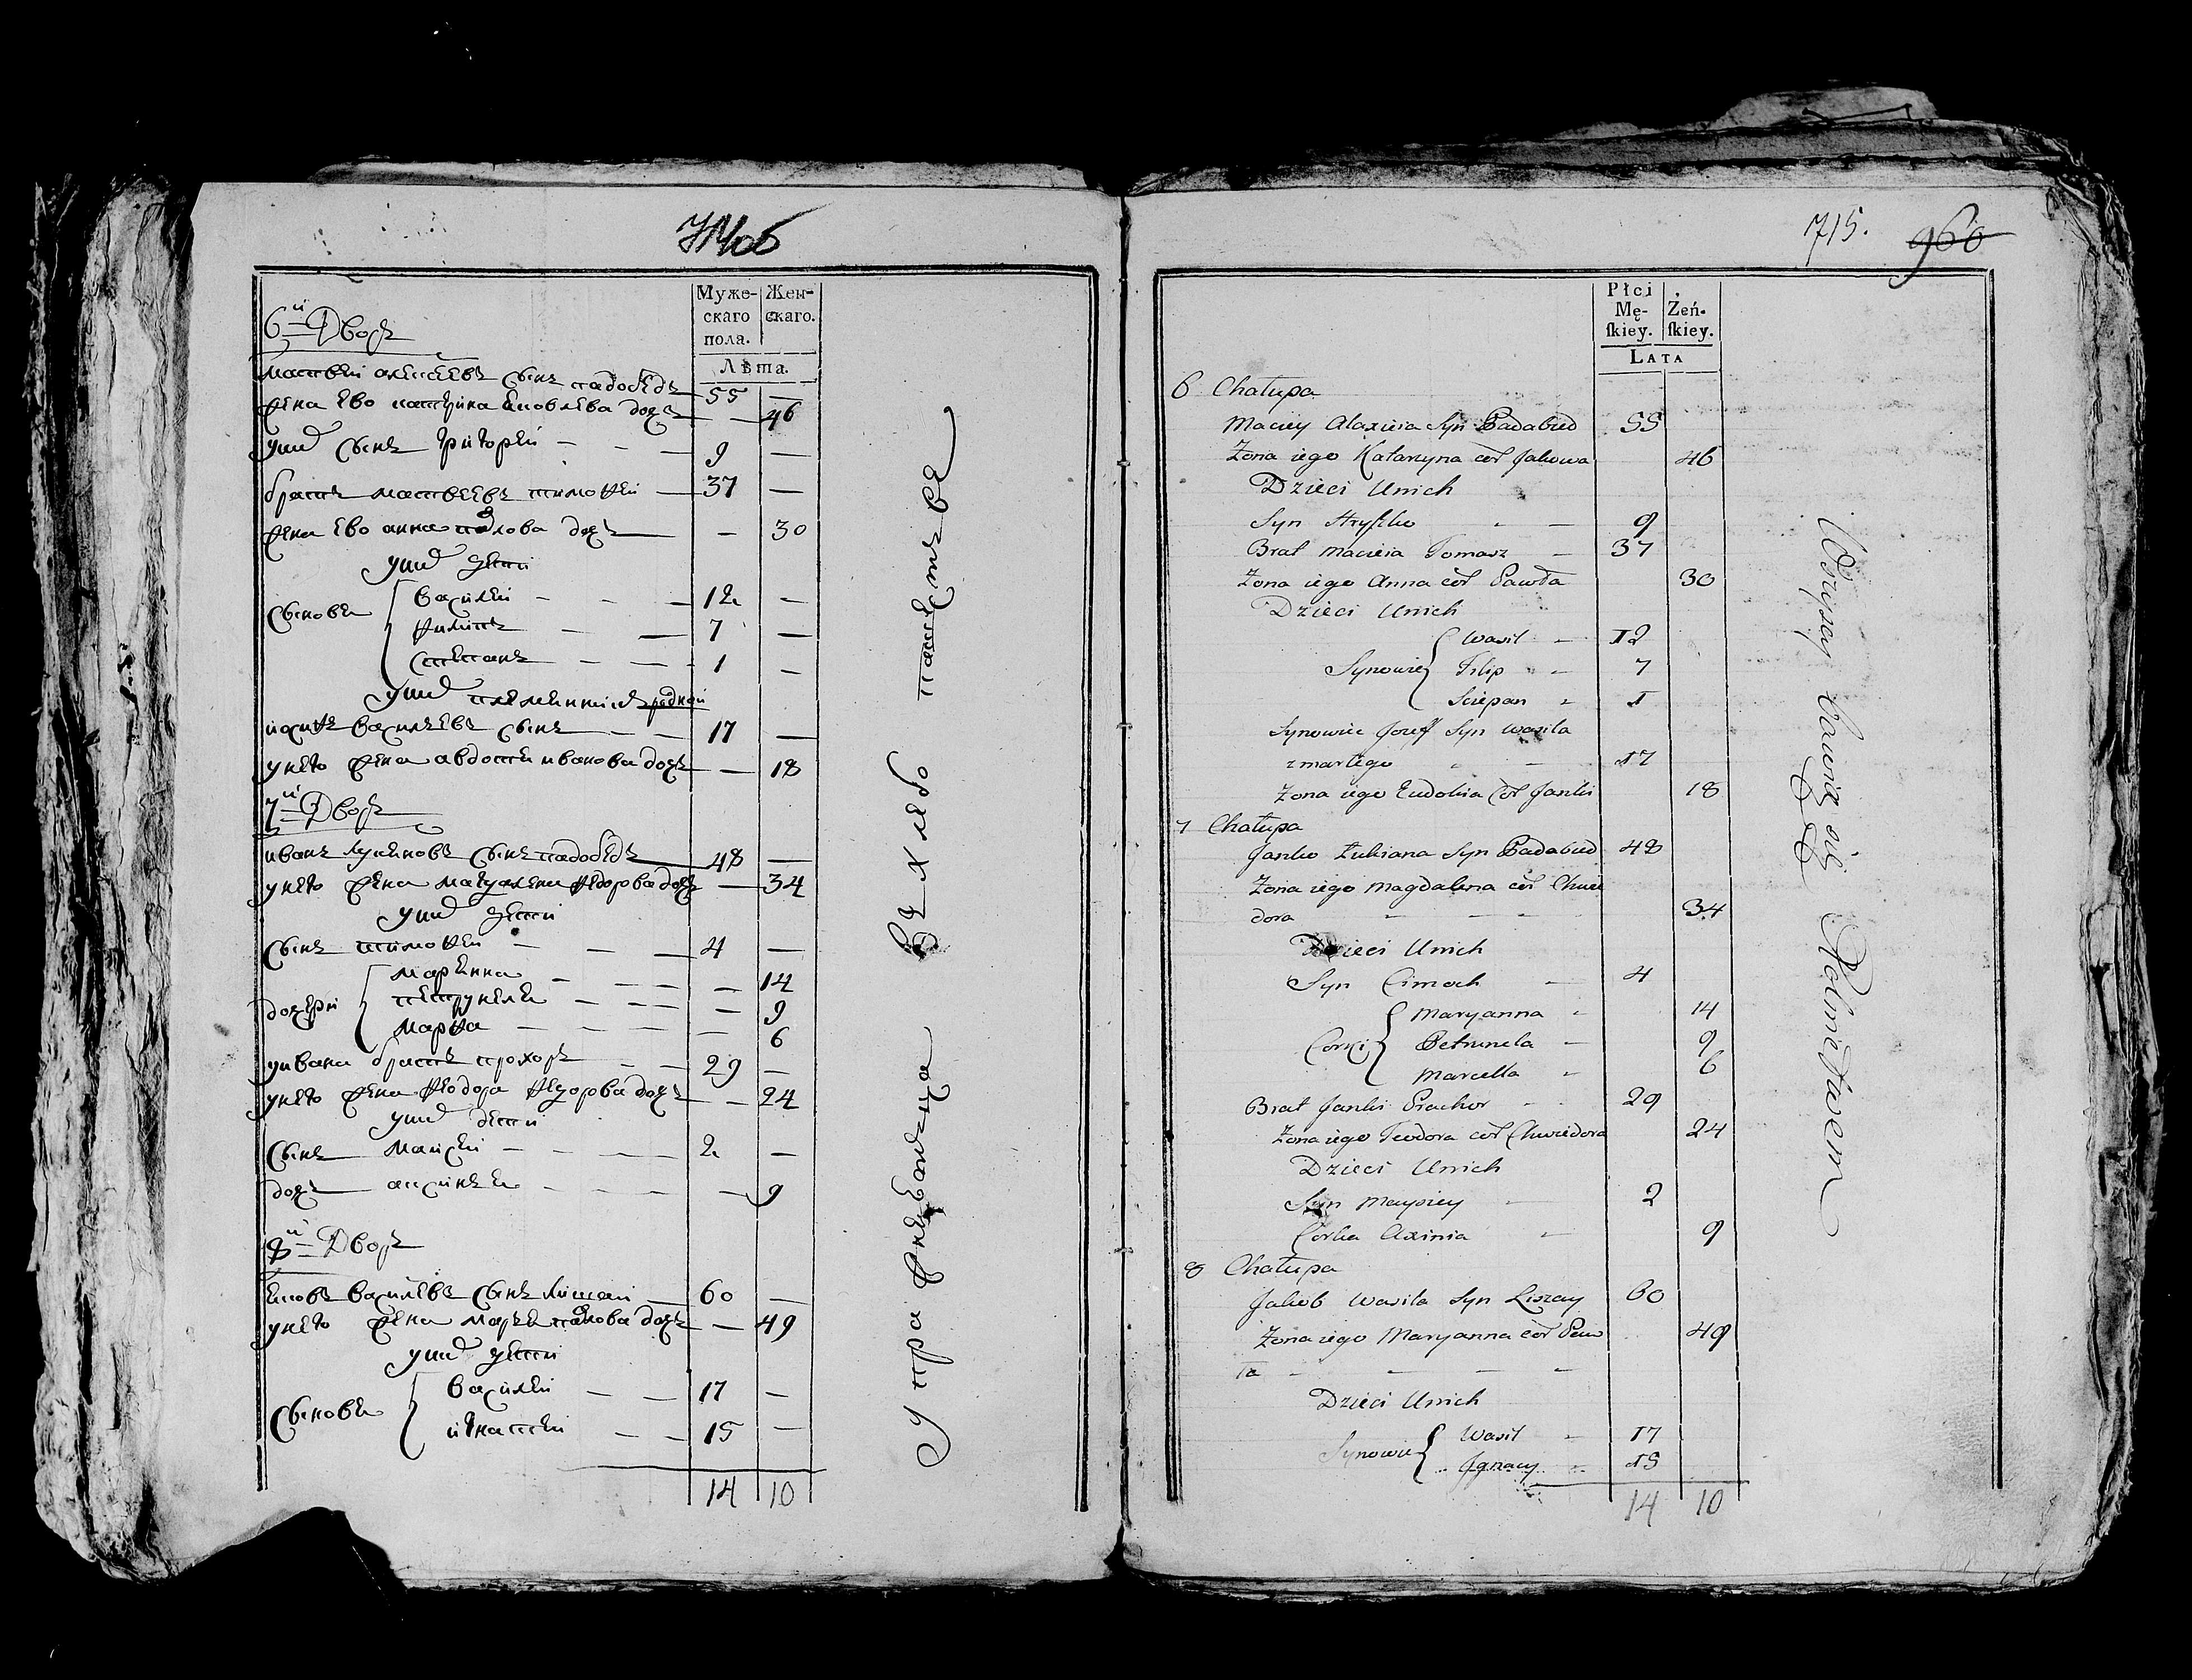 714об
Муже-
скаго
пола.
Жен-
скаго.
Лѣта.
6й Дворъ
Матвей алексеевъ сынъ падобедъ 55 —
жена ево катерина Яковлева дочь — 46
уних сынъ григорей — 9 —
братъ матвеевъ тимофей — 37 —
жена ево анна павлова дочь — 30
уних дети
сыновья василей — 12 —
филипъ — 7 —
степанъ — 1 —
уних племянникъ родной
иосифъ васильевъ сынъ — 17 —
унего жена авдотья иванова дочь — 18
7й Дворъ
иванъ лукьяновъ сынъ падобедъ 48 —
унего жена магдалена федорова дочь — 34
уних дети
сынъ тимофей — 4 —
дочери марьянна — 14
петрунеля — 9
марфа — 6
уивана братъ прохоръ — 29 —
унего жена феодора федорова дочь — 24
уних дети
сынъ майсей — 2 —
дочь аксинья — 9
8й Дворъ
Яковъ васильевъ сынъ лишай — 60 —
унего жена марья павлова дочь — 49
уних дети
сыновья василей — 17 —
игнатей — 15 —
14 10
Упражняюща вся хлебо пашестве
715. 960
Płci
Mę-
skiey.
Żeń-
skiey.
Lata
6 Chałupa
Maciey Alaxieia Syn Padabied 55
Żona iego Katarzyna cór Jakowa 46
Dzieci Unich
Syn Hryszko — 9
Brat Macieia Tomasz — 37
Żona iego Anna cór Pawła 30
Dzieci Unich
Synowie Wasil — 12
Filip — 7
Sciepan — 1
Synowiec Jozeff Syn Wasila
zmarłego — 17
Żona iego Eudokia Cór Janki 18
7 Chałupa
Janko Łukiana Syn Padabied 48
Żona iego Magdalena cór Chwie
dora — 34
Dzieci Unich
Syn Cimoch — 4
Corki Maryanna — 14
Petrunela — 9
Marcella — 6
Brat Janki Prachor — 29
Żona iego Teodora cór Chwiedora 24
Dzieci Unich
Syn Maysiey — 2
Corka Axinia — 9
8 Chałupa
Jakób Wasila Syn Liszay 60
Żona iego Maryanna cór Paw 49
ła —
Dzieci Unich
Synowie Wasil — 17
Jgnacy — 15
14 10
Wszyscy bawią się Rolnictwem